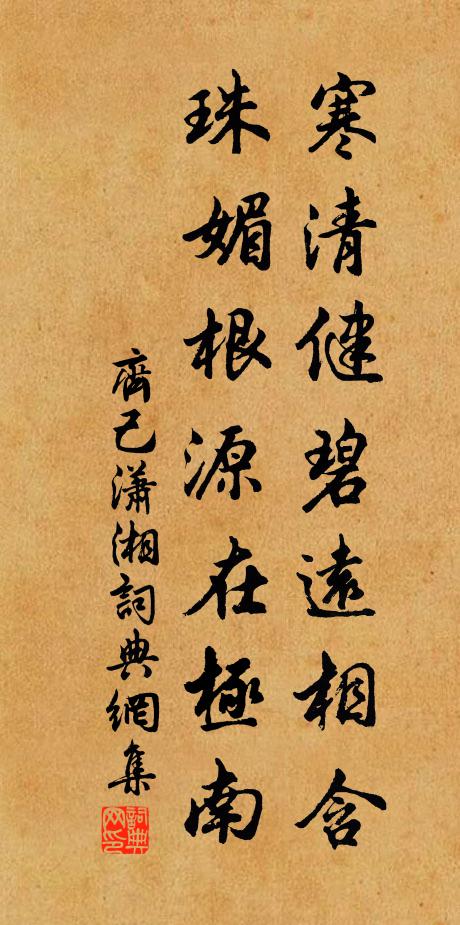 寒清健碧遠相含
珠媚根源在極南
齊己瀟湘詞典網集
詞典網印